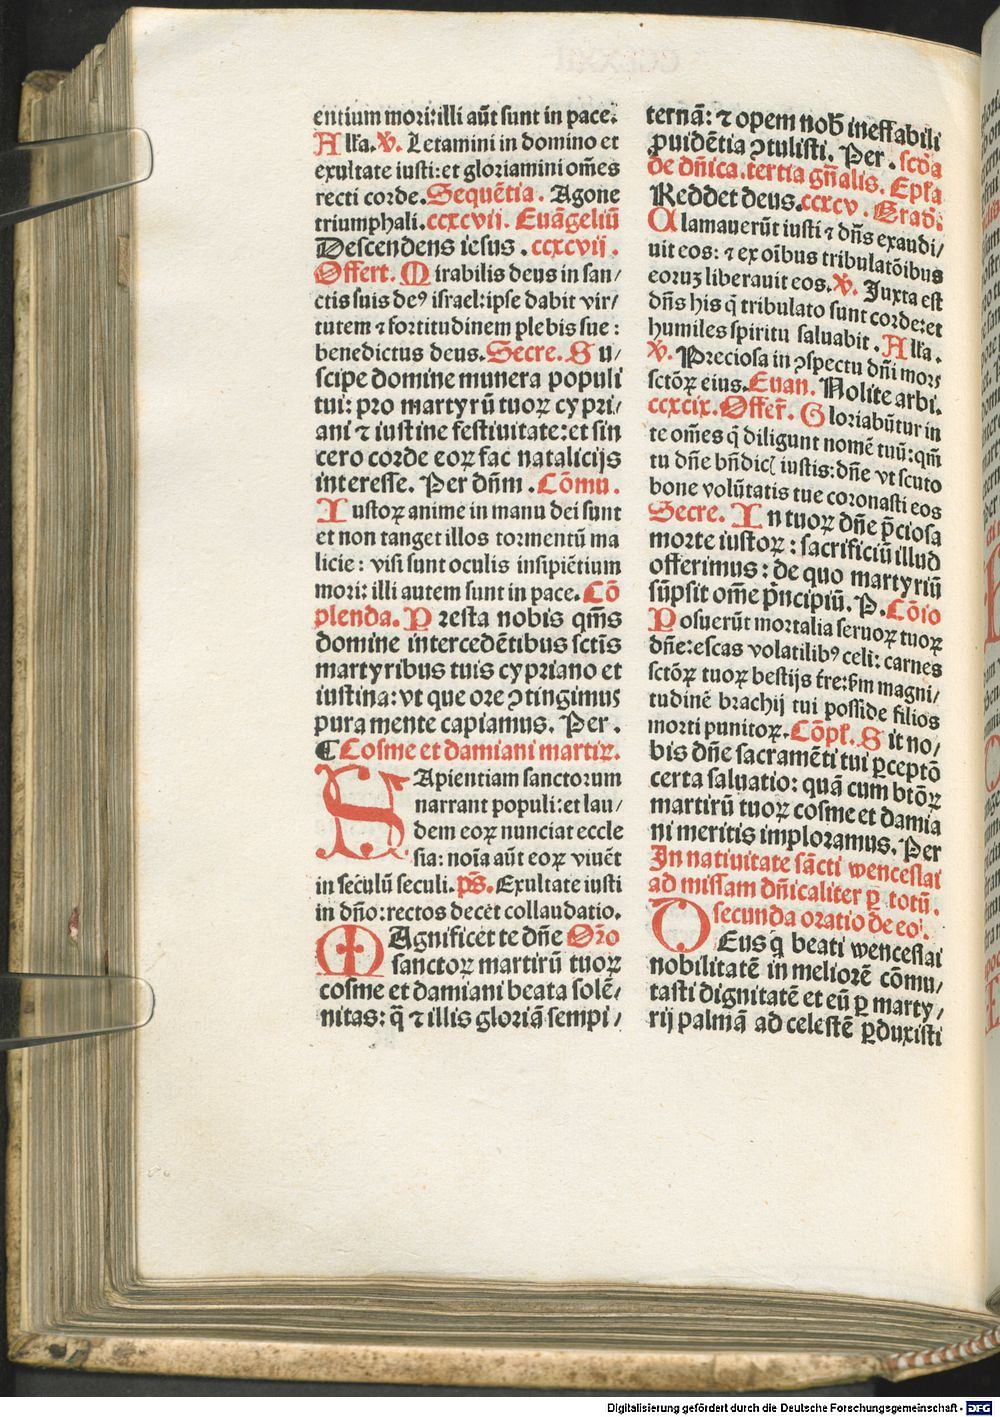 entium mori: illi aūt sunt in pace.
Alľa. V̇. Letamini in domino et
exultate iusti: et gloriamini om̄es
recti corde. Sequētia. Agone
triumphali. ccxcvii. Euāgeliū
Descendens iesus. ccxcvij.
Offert. Mirabilis deus in san/
ctis suis deꝰ israel: ipse dabit vir/
tutem ⁊ fortitudinem plebis sue:
benedictus deus. Secre. Su/
scipe domine munera populi
tui: pro martyrū tuoꝝ cypri/
ani ⁊ iustine festiuitate: et sin
cero corde eoꝝ fac natalicijs
interesse. Per dn̄m. Cōmu.
Iustoꝝ anime in manu dei sunt
et non tanget illos tormentū ma
licie: visi sunt oculis insipiētium
mori: illi autem sunt in pace. Cō
plenda. Presta nobis qm̄s
domine intercedētibus sctīs
martyribus tuis cypriano et
iustina: vt que ore ꝯtingimus
pura mente capiamus. Per.
¶ Cosme et damiani martiꝝ.
SApientiam sanctorum
narrant populi: et lau/
dem eoꝝ nunciat eccle
sia: noīa aūt eoꝝ viuēt
in seculū seculi. pš. Exultate iusti
in dn̄o: rectos decet collaudatio.
MAgnificet te dn̄e Oŕo
sanctoꝝ martirū tuoꝝ
cosme et damiani beata solē/
nitas: q̄ ⁊ illis gloriā sempi/
ternā: ⁊ opem nob̄ ineffabili
ꝓuidētia ꝯtulisti. Per. scďa
de dn̄ica. tertia gn̄alis. Epľa
Reddet deus. ccxcv. Grad̄.
Clamauerūt iusti ⁊ dn̄s exaudi/
uit eos: ⁊ ex oībus tribulatōibus
eoruꝫ liberauit eos. V̇. Juxta est
dn̄s his q̄ tribulato sunt corde: et
humiles spiritu saluabit. Alľa.
V̇. Preciosa in ꝯspectu dn̄i mors
sctōꝝ eius. Euan. Nolite arbi.
ccxcix. Offer̄. Gloriabūtur in
te om̄es q̄ diligunt nomē tuū: qm̄
tu dn̄e bn̄dicꝭ iustis: dn̄e vt scuto
bone volūtatis tue coronasti eos
Secre. In tuoꝝ dn̄e p̄ciosa
morte iustoꝝ: sacrificiū illud
offerimus: de quo martyriū
sūpsit om̄e p̄ncipiū. P. Cōio
Posuerūt mortalia seruoꝝ tuoꝝ
dn̄e: escas volatilibꝰ celi: carnes
sctōꝝ tuoꝝ bestijs t̄re: s̄m magni/
tudinē brachij tui posside filios
morti punitoꝝ. Cōpľ. Sit no/
bis dn̄e sacramēti tui ꝑceptō
certa saluatio: quā cum btōꝝ
martirū tuoꝝ cosme et damia
ni meritis imploramus. Per
In natiuitate sācti wenceslai
ad missam dn̄icaliter ꝑ totū.
secunda oratio de eo.
DEus q̄ beati wenceslai
nobilitatē in meliorē cōmu/
tasti dignitatē et eū ꝑ marty/
rij palmā ad celestē ꝑduxisti
Digitalisierung gefördert durch die Deutsche Forschungsgemeinschaft - DFG